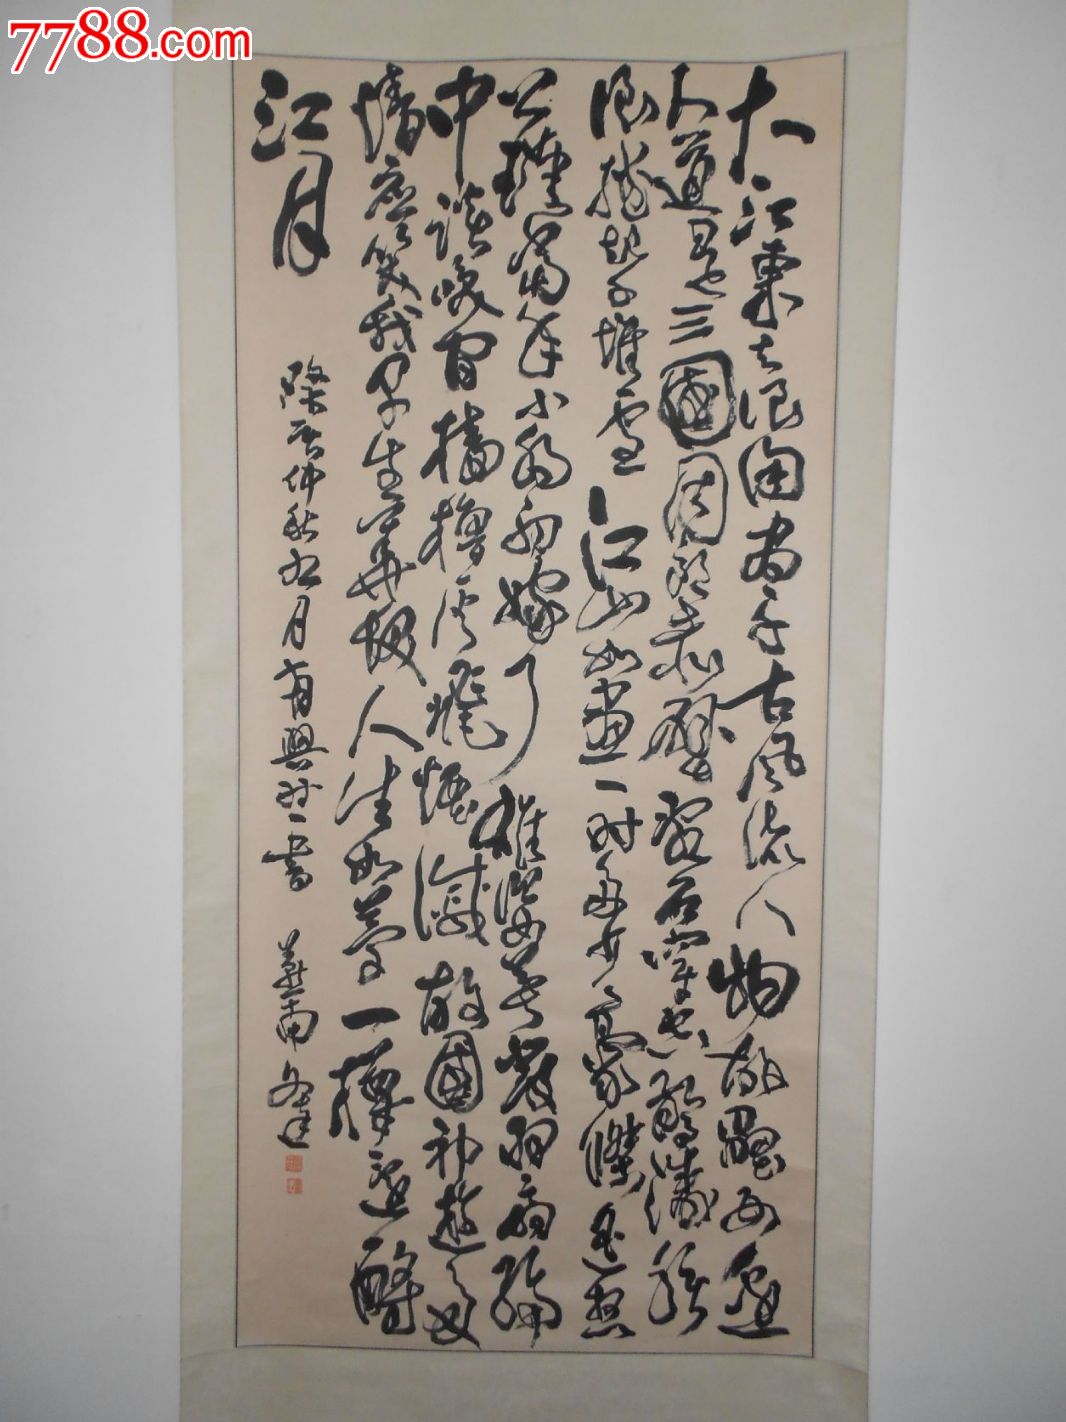 7788.com
大江東去浪淘盡千古風流人物故壘西邊
人道是三國周郎赤壁亂石穿空驚濤拍
浪捲起千堆雪江山如畫一時多少豪傑遥想
公瑾當年小喬初嫁了雄姿英發羽扇綸
巾談笑間檣櫓灰飛煙滅故國神遊多
情應笑我早生華髮人生如夢一樽還酹
江月
仲秋九月有興時一書